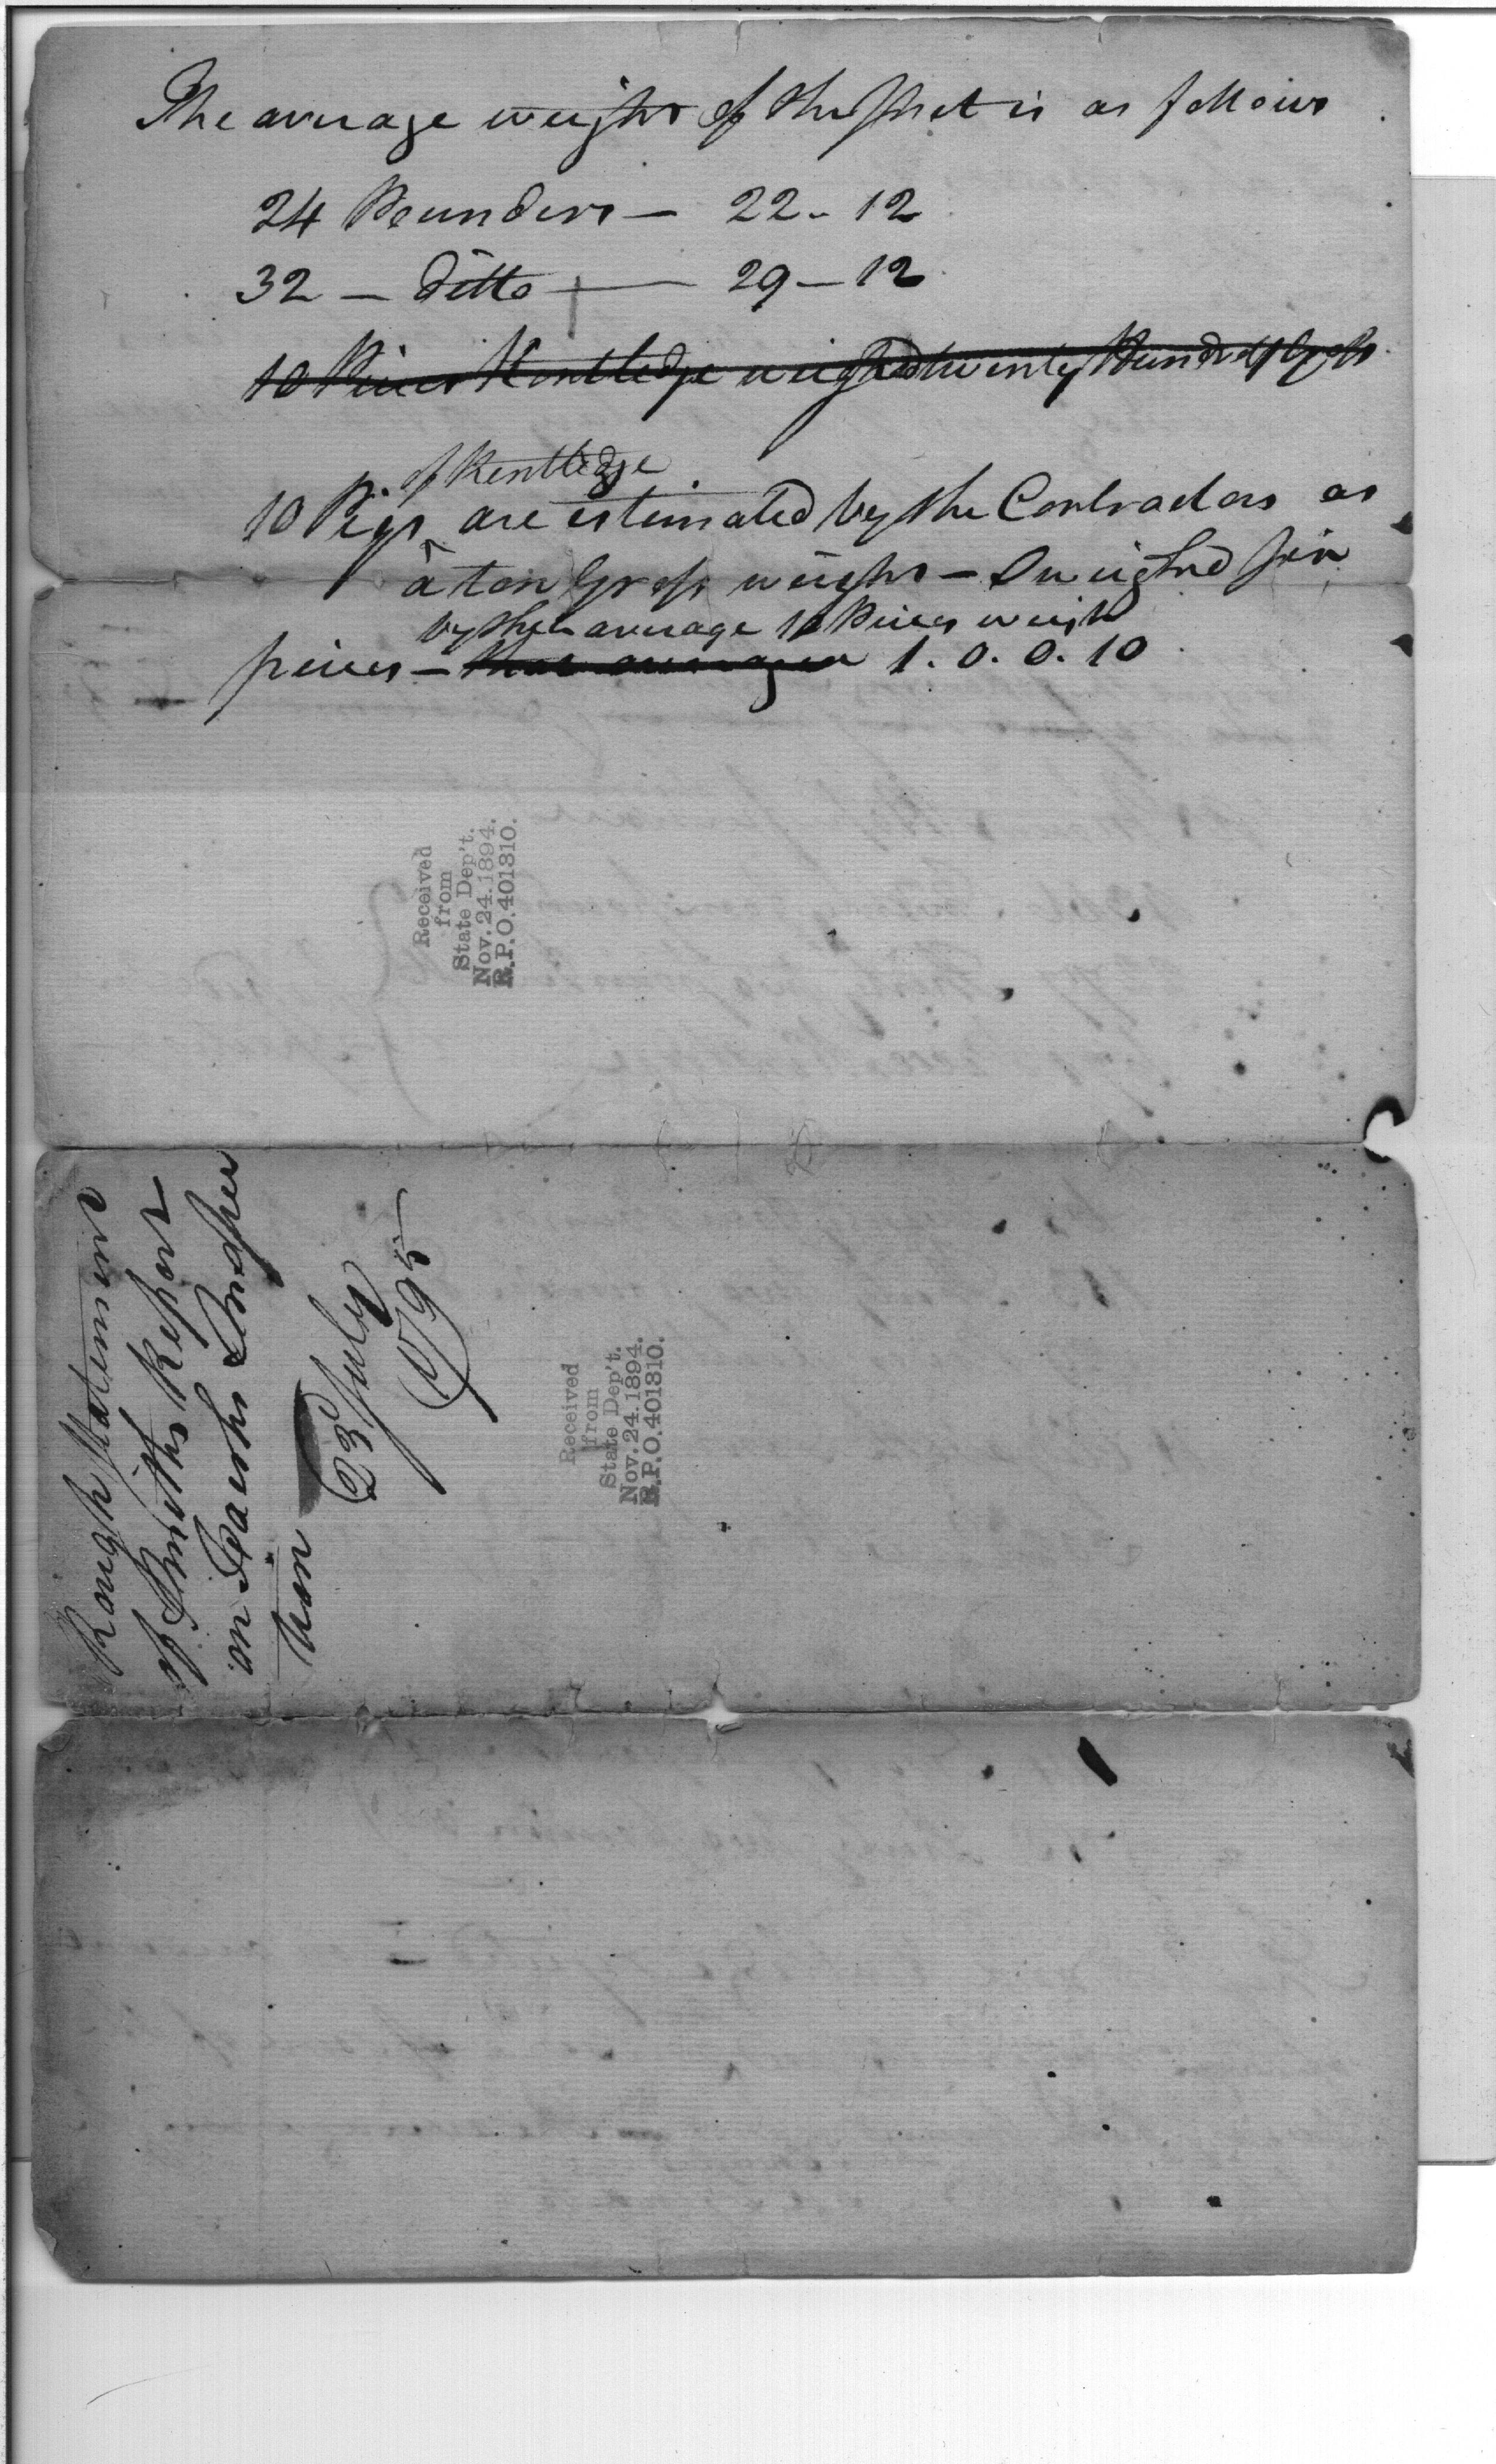 The average weight of the Shot is as follows
24 Pounders — 22 - 12
32 — ditto — 29 — 12
10 Pieces Kentledge weighed twenty Hundred
of Kentledge
10 Pigs ^ are estimated by the Contractors as
a ton Gross weight — I weighed six
by that average 10 Pieces weigh
pieces — that averaged 1. 0. 0. 10
Received
from
State Dep't.
Nov. 24. 1894.
R.P.O. 401310.
Rough Statement
of Smiths Report
on Inspec
tion
23d July
1795
Received
from
State Dep't.
Nov. 24. 1894.
R.P.O. 401310.